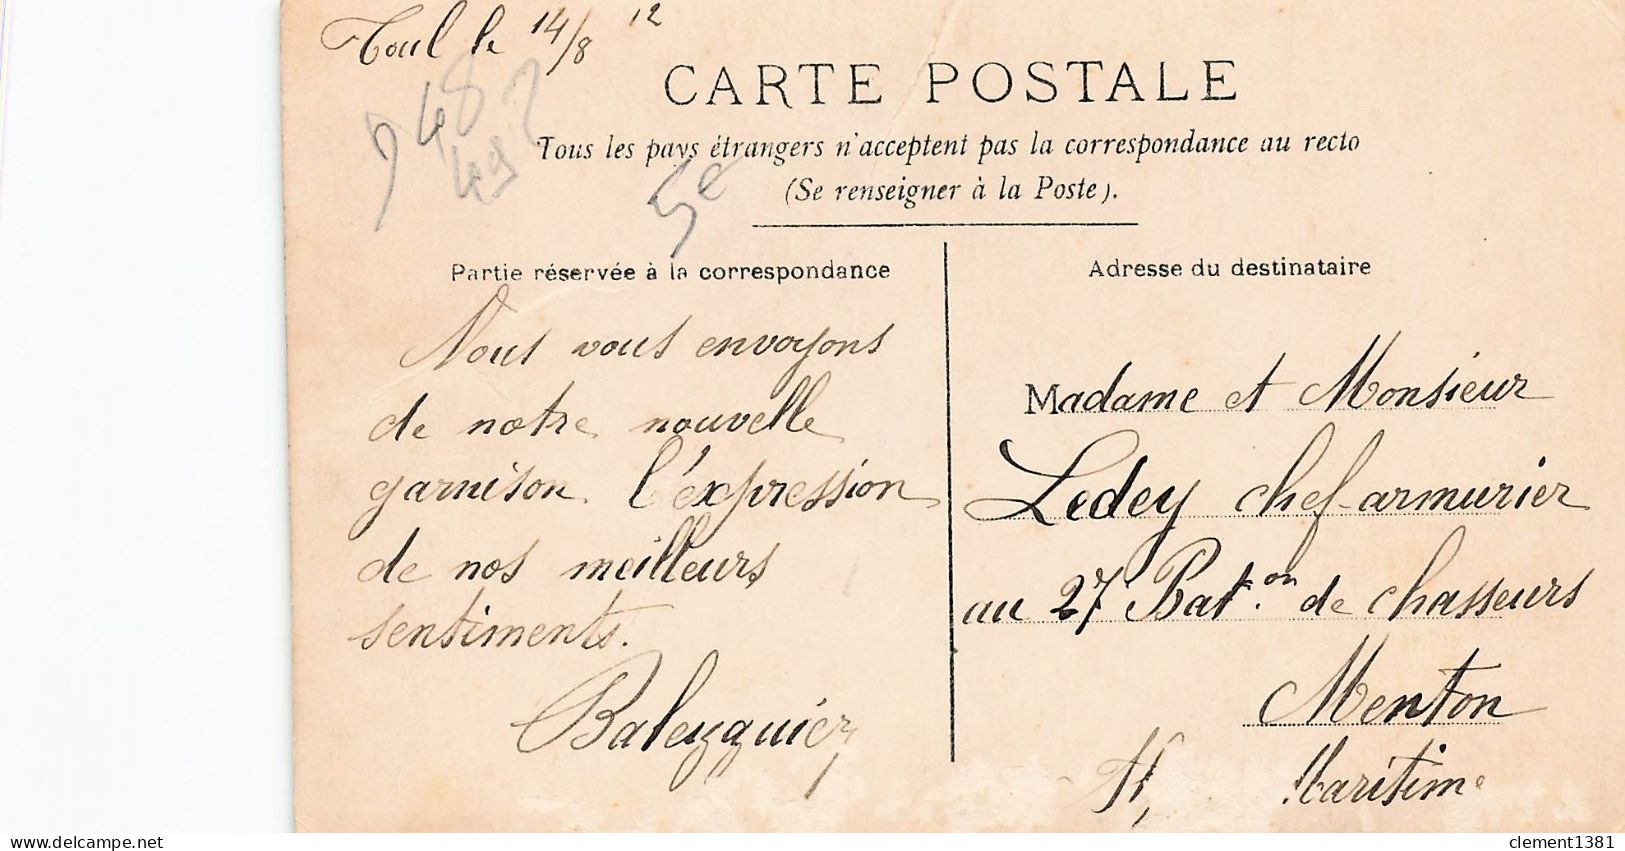 Toul le 14/8 12
948
49
5e
CARTE POSTALE
Tous les pays étrangers n'acceptent pas la correspondance au recto
(Se renseigner à la Poste).
Partie réservée à la correspondance
Nous vous envoyons
de notre nouvelle
garnison l'expression
de nos meilleurs
sentiments.
Baleyguier
Adresse du destinataire
Madame et Monsieur
Ledey chef-armurier
au 27 Bat.on de chasseurs
Menton
Maritim
clement1381